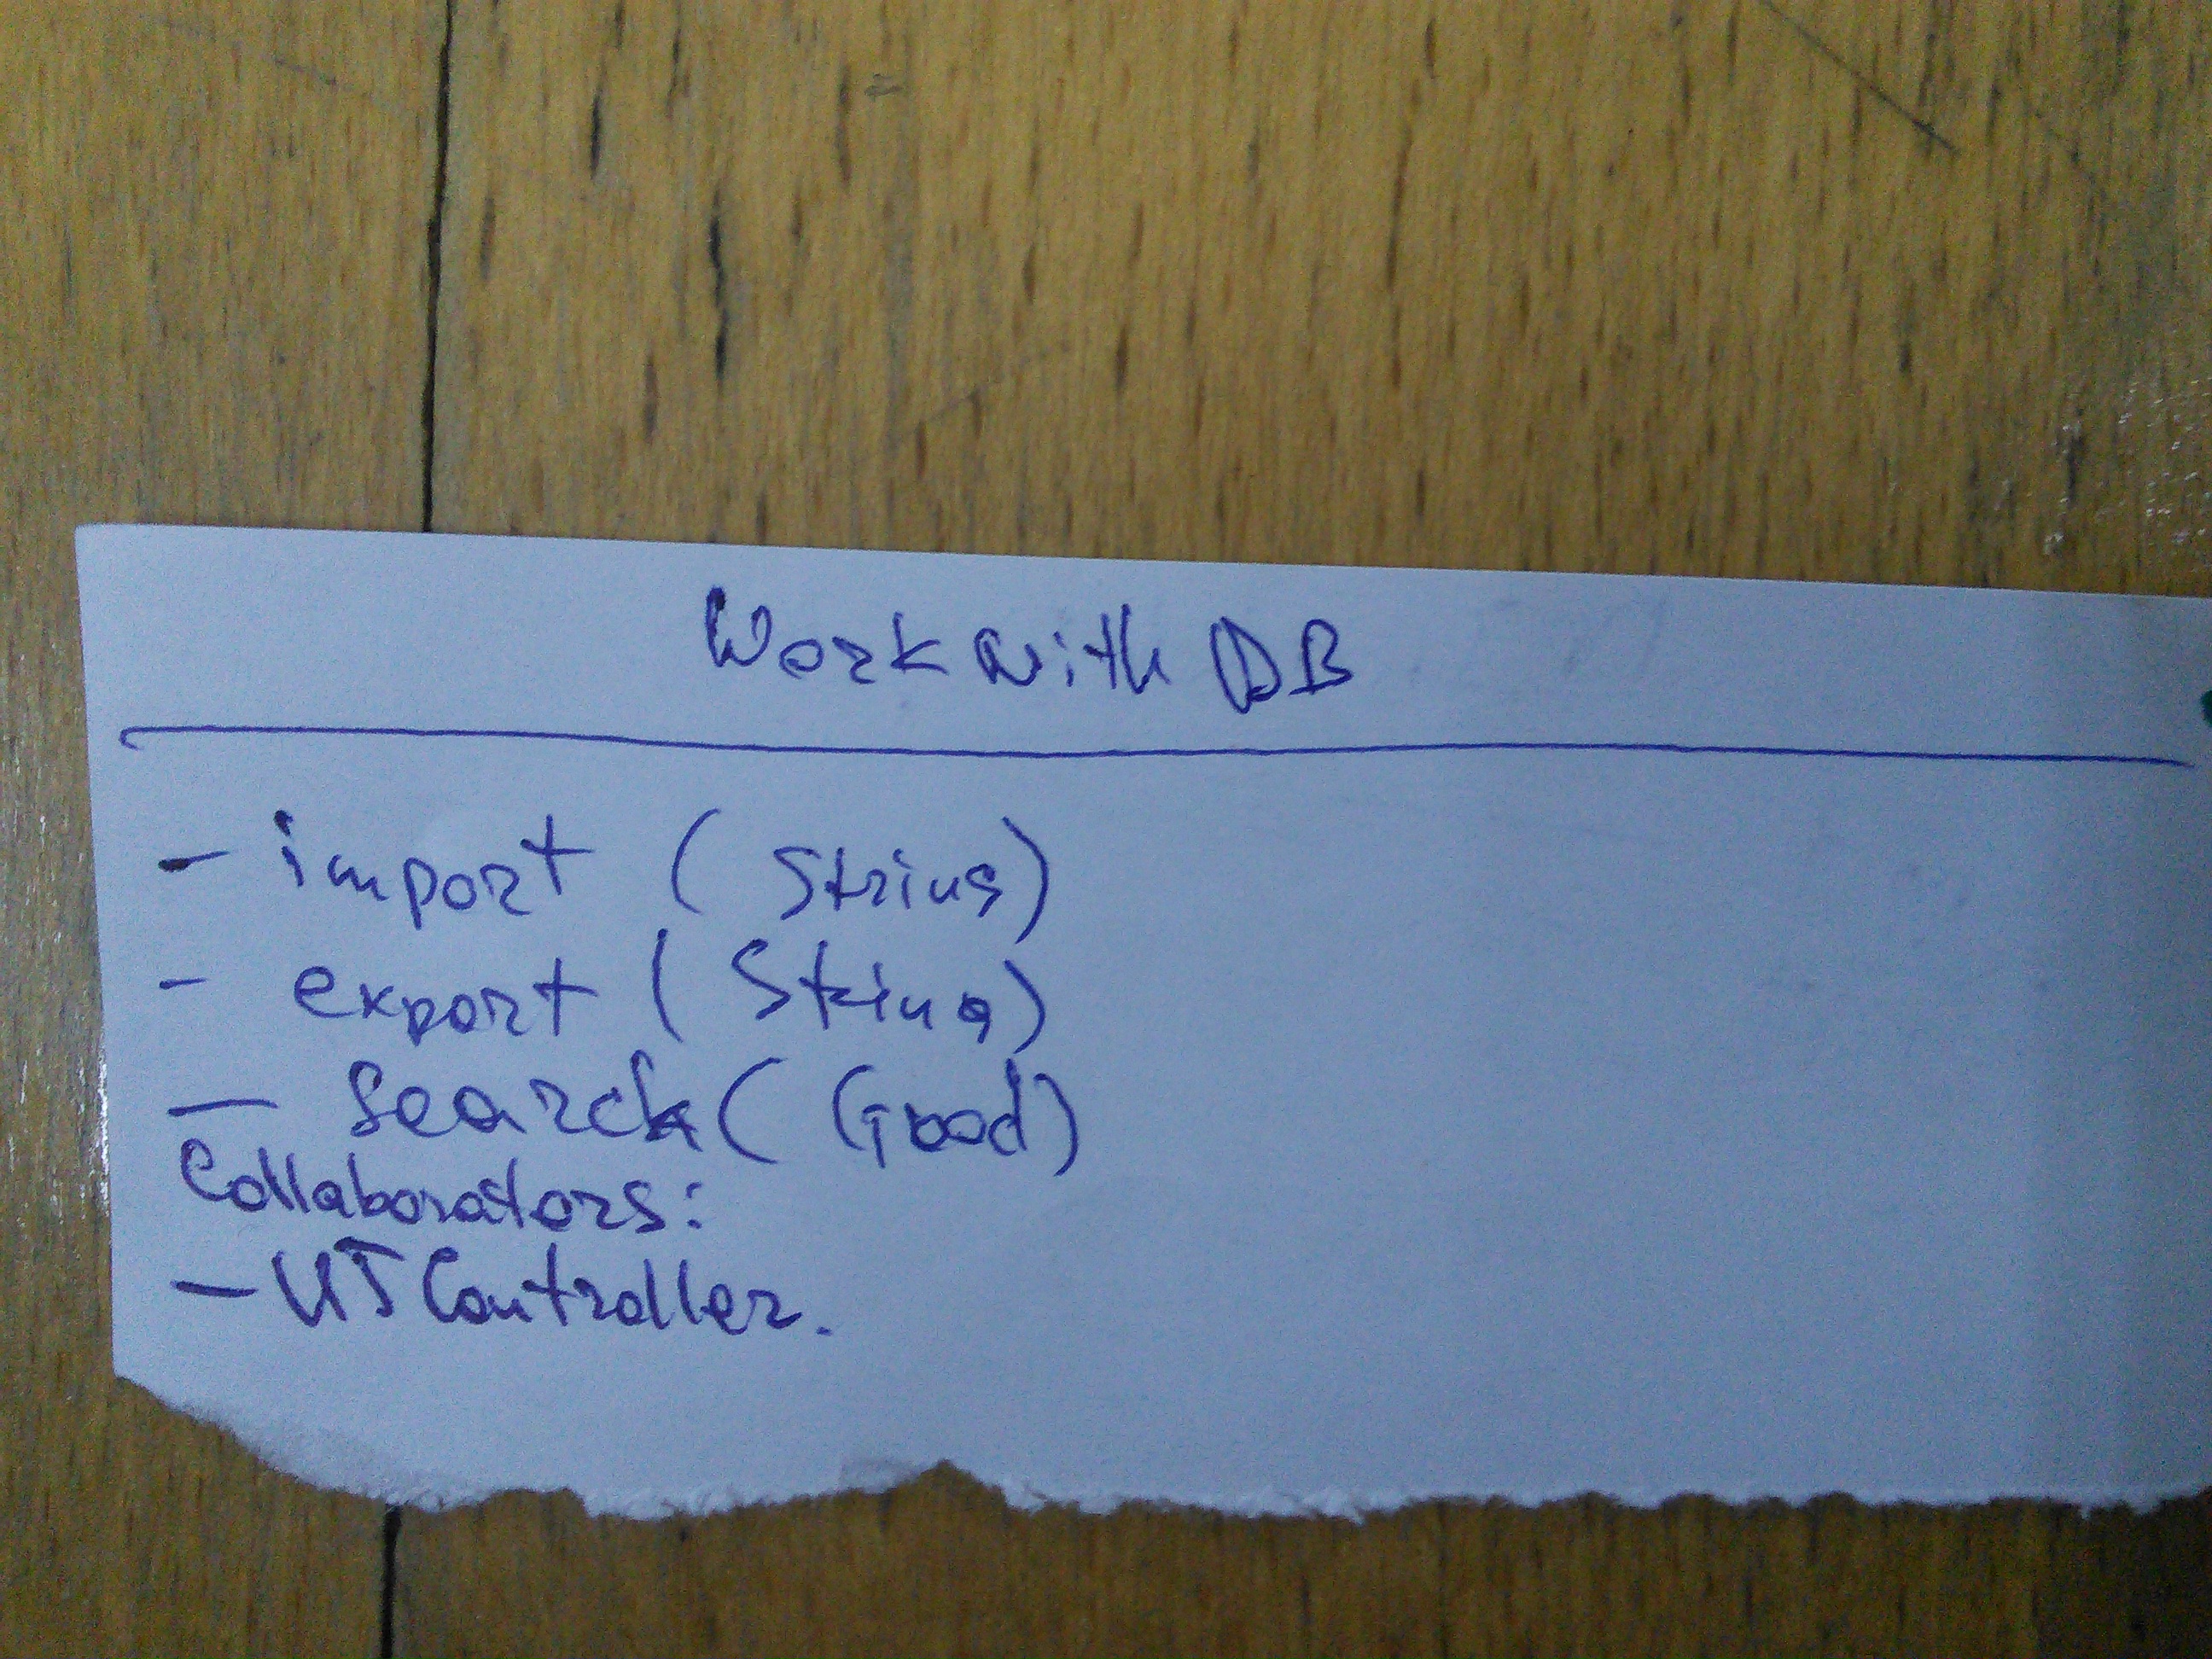 Work with DB
- import (String)
- export (String)
- Search (Good)
Collaborators:
- UI Controller.